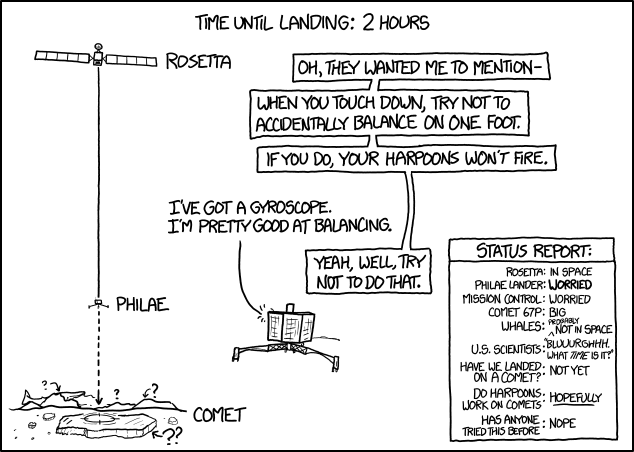 TIME UNTIL LANDING: 2 HOURS
ROSETTA
OH, THEY WANTED ME TO MENTION-
WHEN YOU TOUCH DOWN, TRY NOT TO
ACCIDENTALLY BALANCE ON ONE FOOT.
IF YOU DO, YOUR HARPOONS WON'T FIRE.
I'VE GOT A GYROSCOPE.
I'M PRETTY GOOD AT BALANCING.
YEAH, WELL, TRY
NOT TO DO THAT.
PHILAE
?
?
?
COMET
??
STATUS REPORT:
ROSETTA: IN SPACE
PHILAE LANDER: WORRIED
MISSION CONTROL: WORRIED
COMET 67P: BIG
WHALES: PROBABLY NOT IN SPACE
U.S. SCIENTISTS: "BLUUURGHHH.
WHAT TIME IS IT?"
HAVE WE LANDED
ON A COMET?: NOT YET
DO HARPOONS
WORK ON COMETS: HOPEFULLY
HAS ANYONE
TRIED THIS BEFORE: NOPE